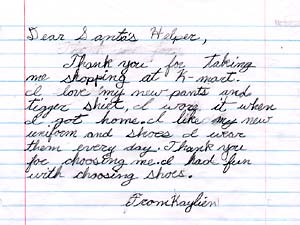 Dear Santa's Helper,
Thank you for taking
me shopping at K-mart.
I love my new pants and
tigger shirt, I wore it when
I got home. I like my new
uniform and shoes I wear
them every day. Thank you
for choosing me. I had fun
with choosing shoes.
From Kaylien